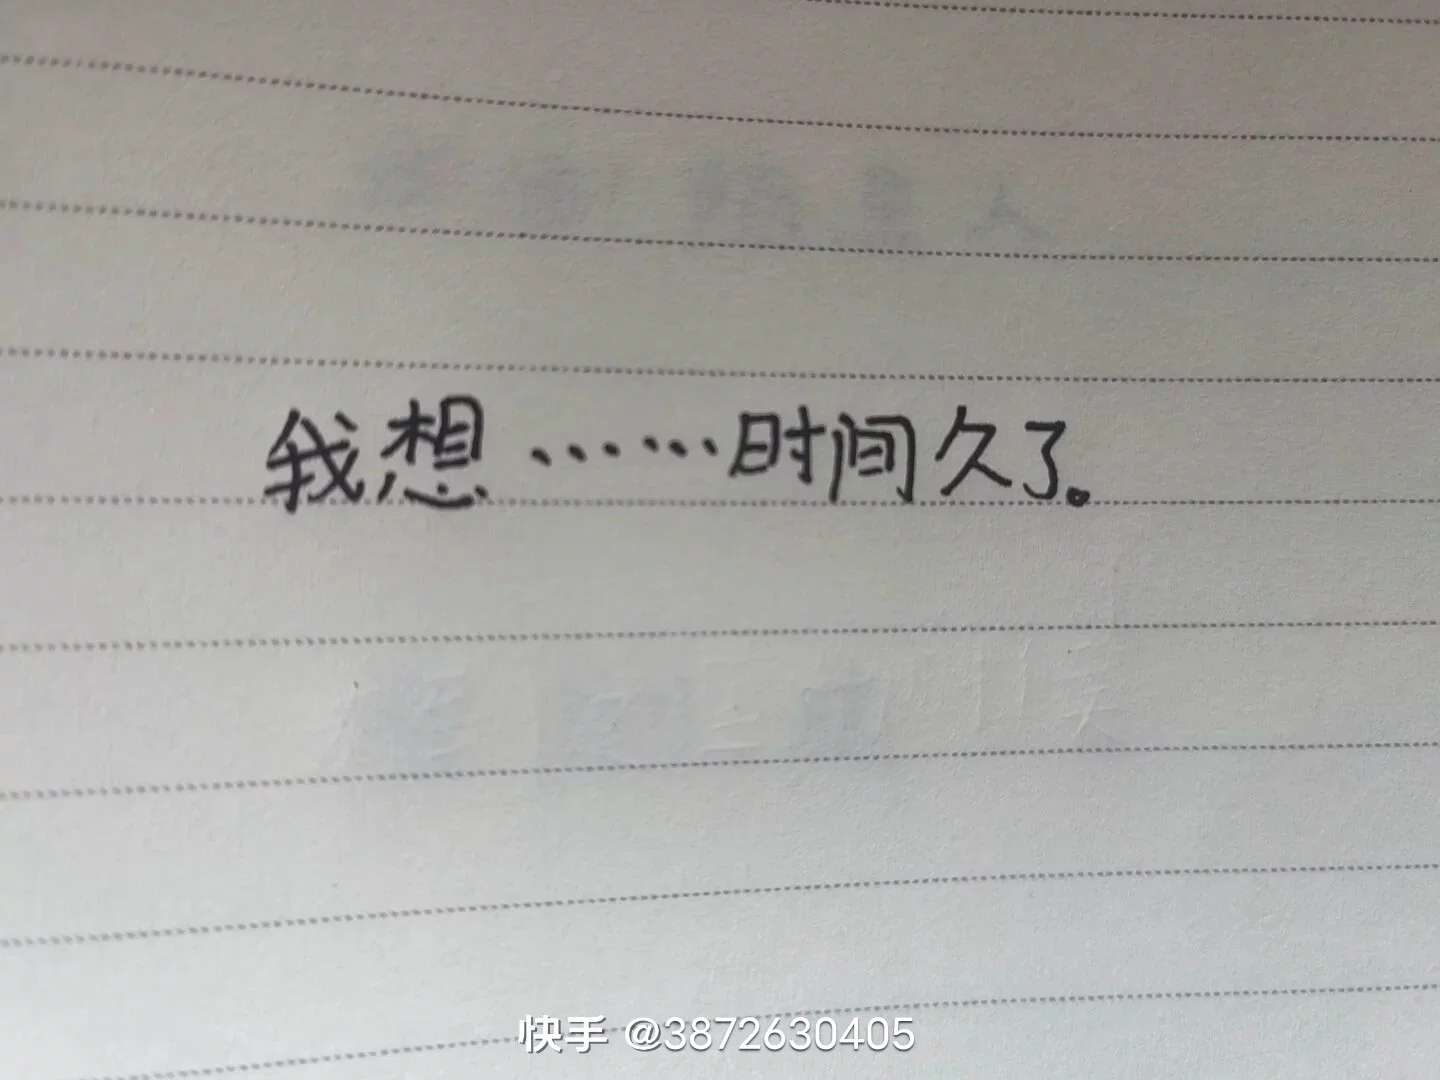 我想……时间久了。
快手 @3872630405